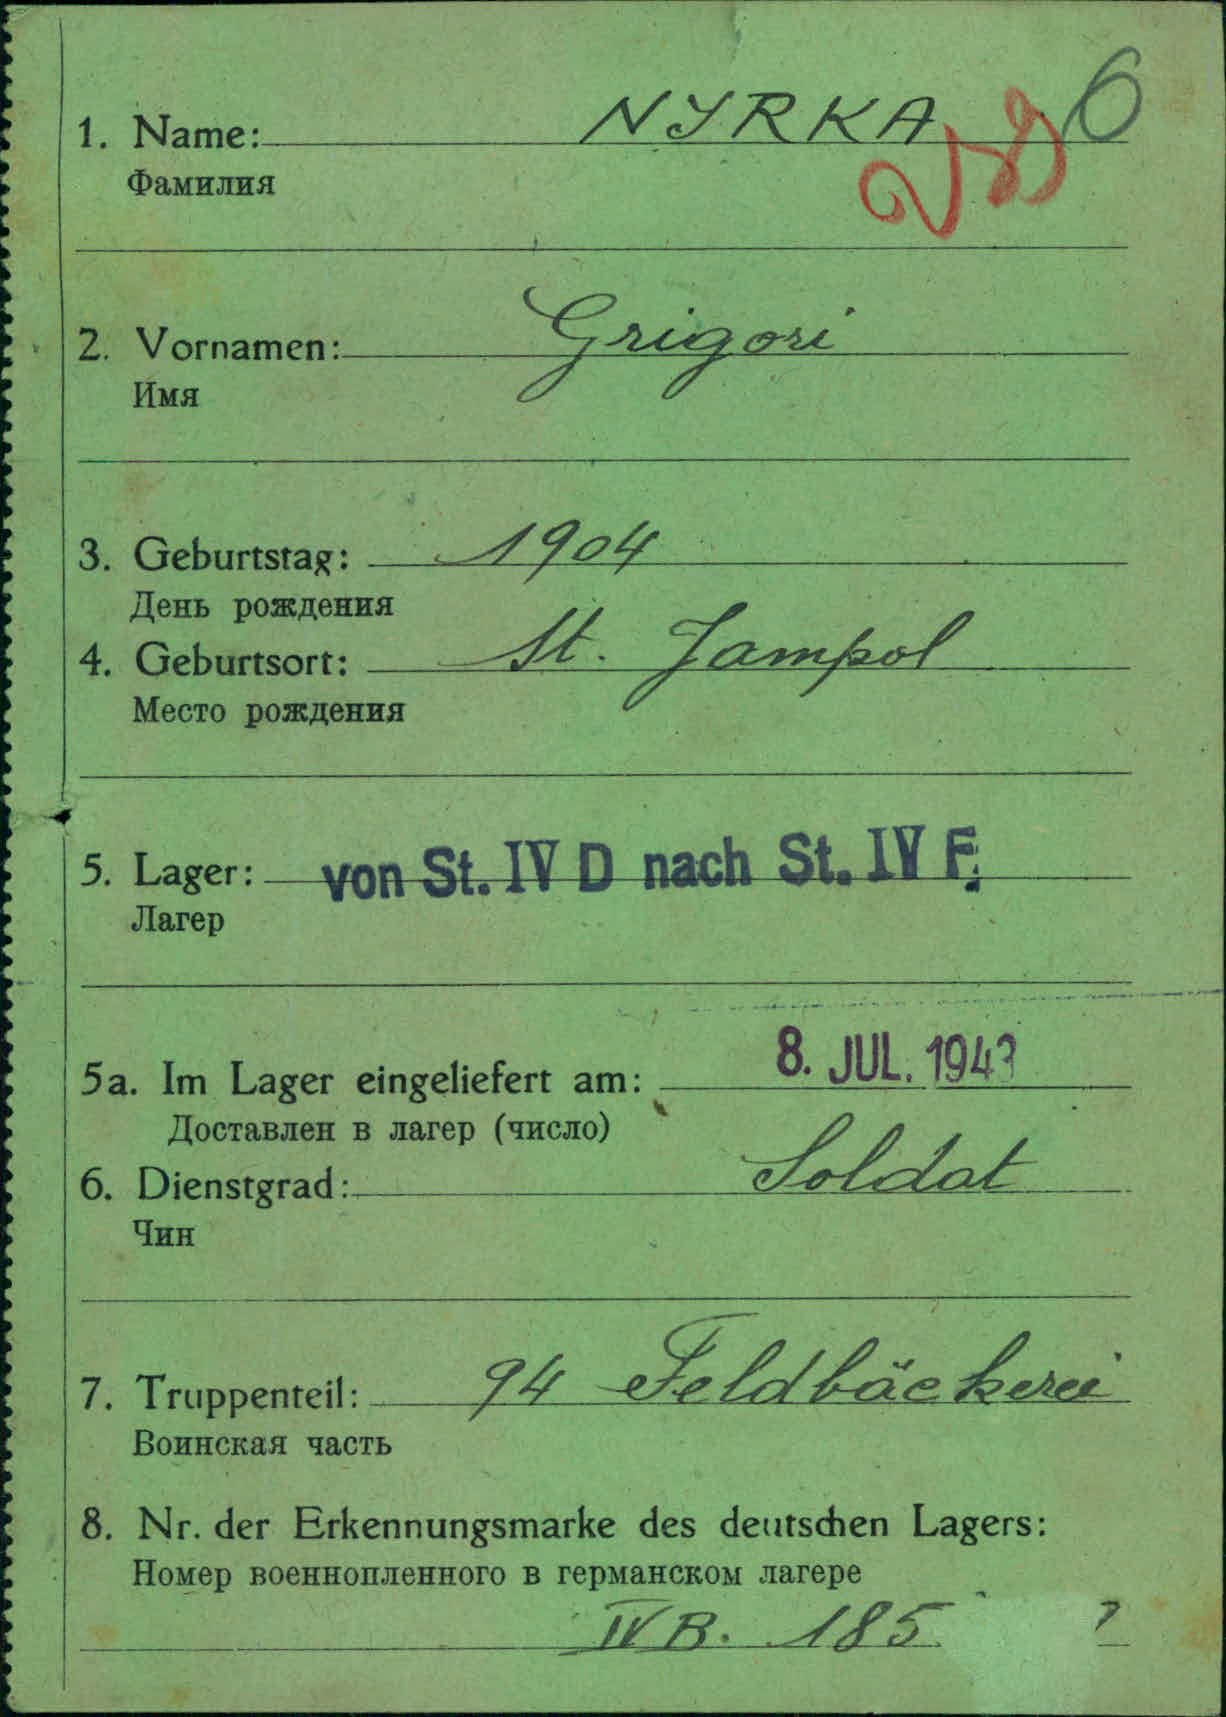 1. Name: NYRKA 6
Фамилия
2. Vornamen: Grigori
Имя
3. Geburtstag: 1904
День рождения
4. Geburtsort: St. Jampol
Место рождения
5. Lager: von St. IV D nach St. IV F.
Лагер
5a. Im Lager eingeliefert am: 8. JUL. 1943
Доставлен в лагер (число)
6. Dienstgrad: Soldat
Чин
7. Truppenteil: 94 Feldbäckerei
Воинская часть
8. Nr. der Erkennungsmarke des deutschen Lagers:
Номер военнопленного в германском лагере
IV B. 185